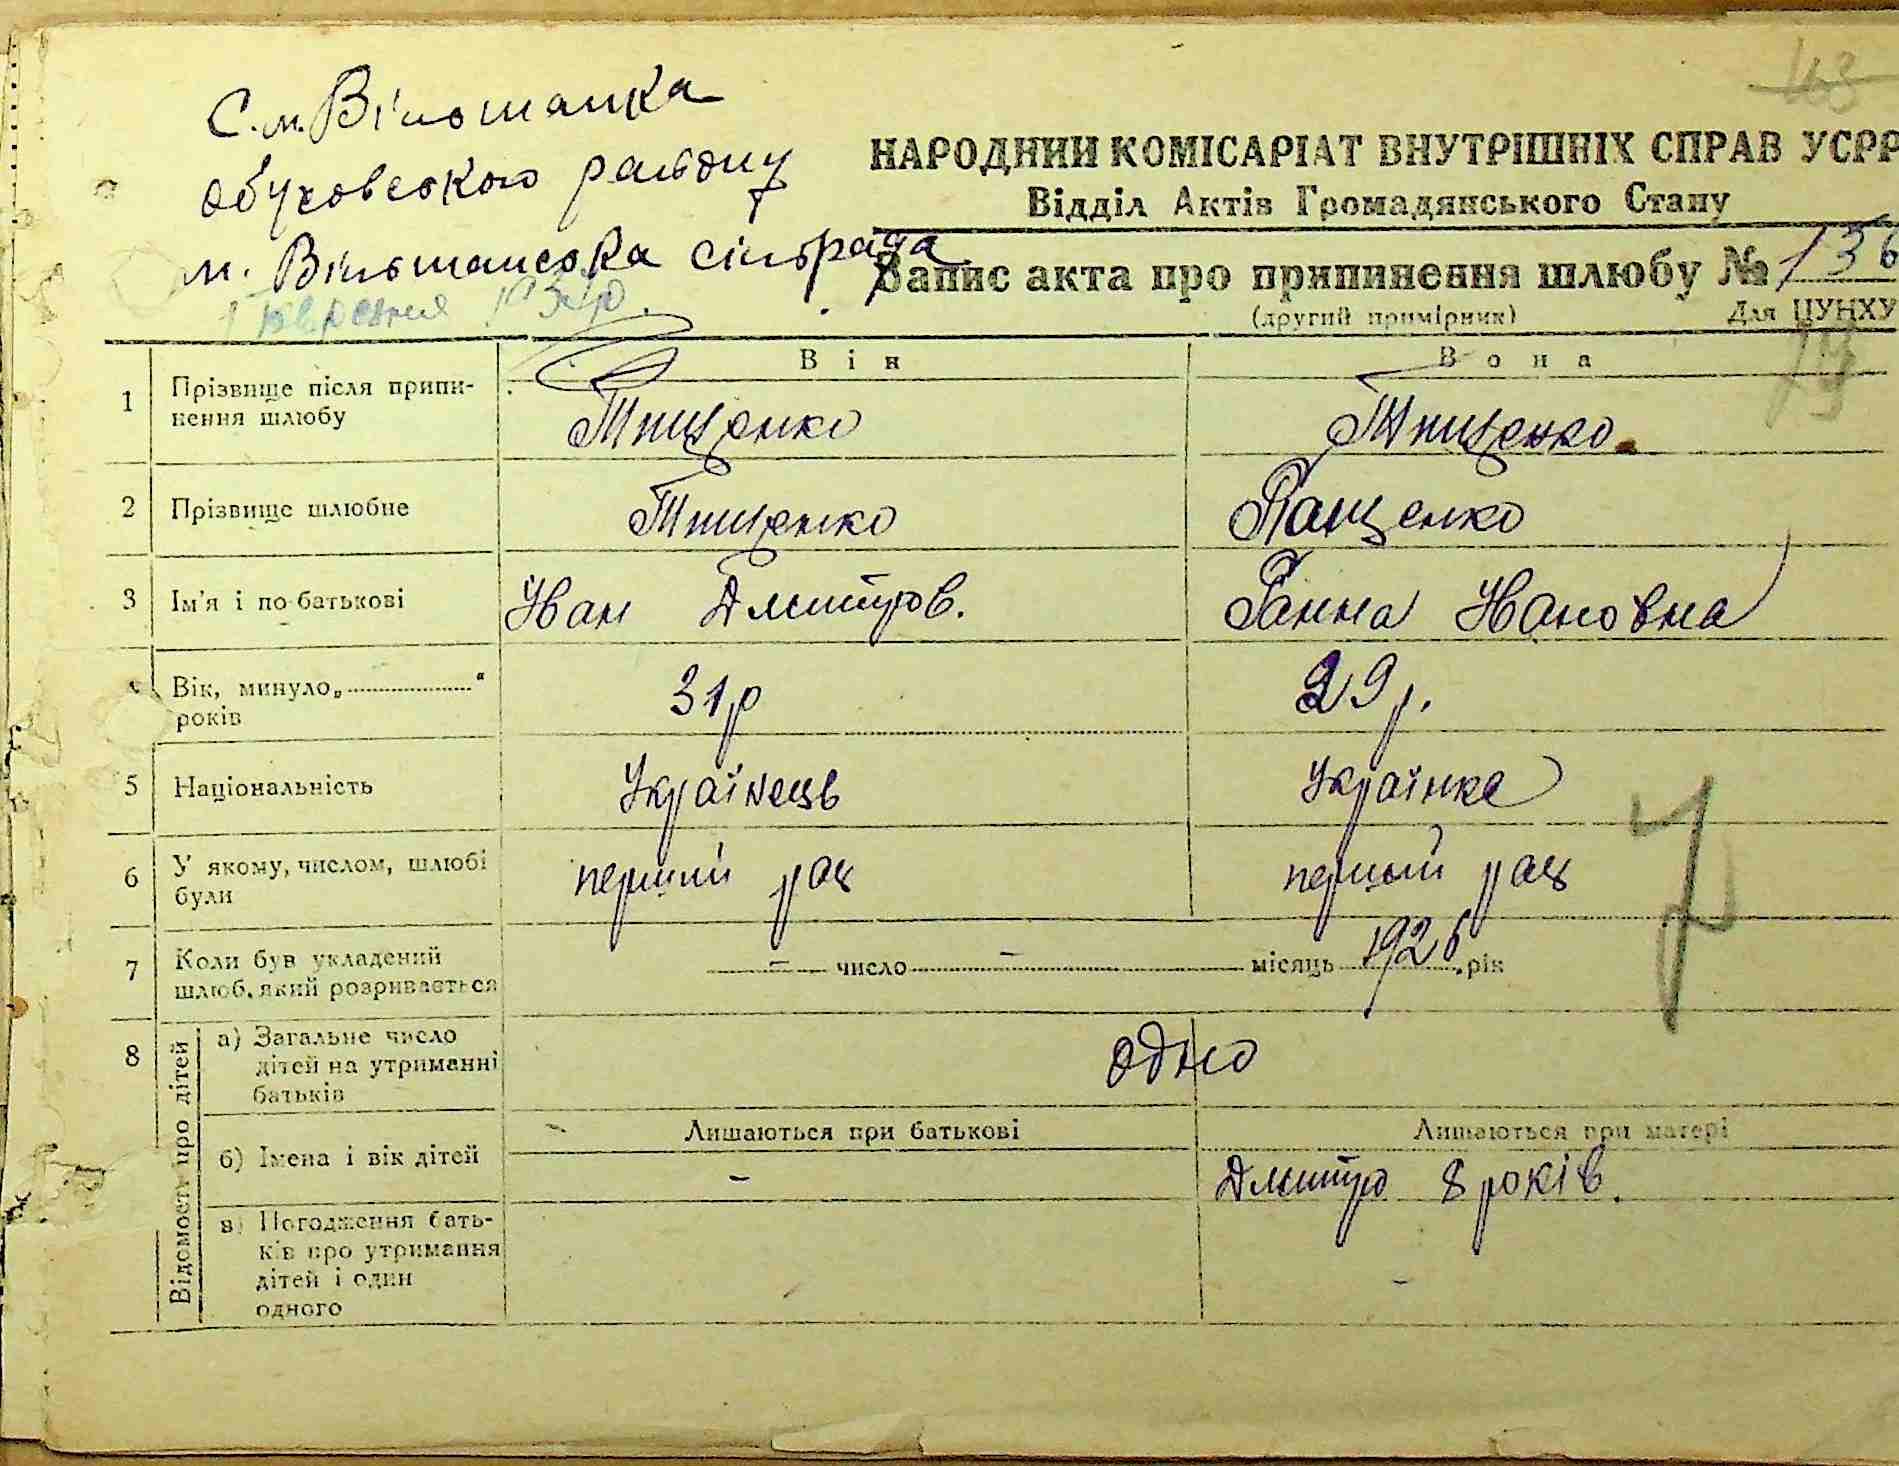 С. м. Вільшанка
Обуховського району
м. Вільшанська сільрада
193
163
НАРОДНИЙ КОМІСАРІАТ ВНУТРІШНІХ СПРАВ УСРР
Відділ Актів Громадянського Стану
Запис акта про припинення шлюбу № 136
(другий примірник) Для ЦУНХУ
Він Вона
1 Прізвище після припи-
нення шлюбу Тищенко Тищенко
2 Прізвище шлюбне Тищенко Пащенко
3 Ім'я і по-батькові Іван Дмитров. Ганна Івановна
Вік, минуло „ “
років 31р 29р.
5 Національність Українець Українка
6 У якому, числом, шлюбі
були перший раз перший раз
7 Коли був укладений
шлюб, який розривається – число – місяць 1926 рік
8 Відомость про дітей
а) Загальне число
дітей на утриманні
батьків одно
Лишаються при батькові Лишаються при матері
б) Імена і вік дітей – Дмитро 8 років.
в) Погодження бать-
ків про утримання
дітей і один
одного –